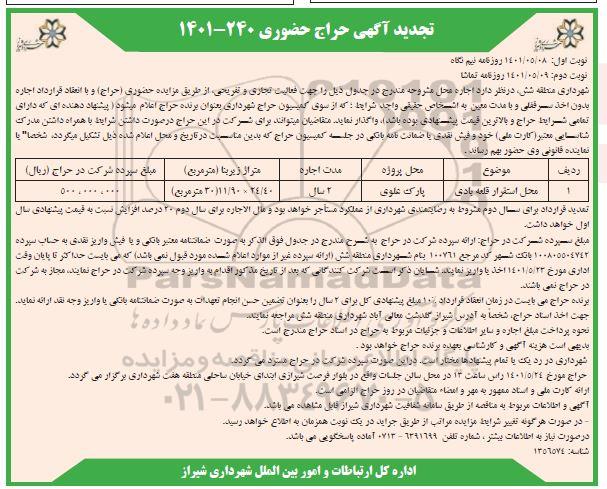 تجدید آگهی حراج حضوری ۲۴۰-۱۴۰۱
نوبت اول: ۱۴۰۱/۰۵/۰۸ روزنامه نیم نگاه
نوبت دوم: ۱۴۰۱/۰۵/۰۹ روزنامه تماشا
شهرداری منطقه شش، درنظر دارد اجاره محل مشروحه مندرج در جدول ذیل را جهت فعالیت تجاری و تفریحی، از طریق مزایده حضوری (حراج) و با انعقاد قرارداد اجاره
بدون اخذ سرقفلی و با مدت معین به اشخاص حقیقی واجد شرایط ؛ که از سوی کمیسیون حراج شهرداری بعنوان برنده حراج اعلام میشود ( پیشنهاد دهنده ای که دارای
تمامی شرایط حراج و بالاترین قیمت پیشنهادی بوده باشد)، واگذار نماید. متقاضیان میتوانند برای شرکت در این حراج درصورت داشتن شرایط با همراه داشتن مدرک
شناسایی معتبر(کارت ملی) خود و فیش نقدی یا ضمانت نامه بانکی در جلسه کمیسیون حراج که بدین مناسبت در تاریخ و محل اعلام شده ذیل تشکیل میگردد، شخصا" یا
نماینده قانونی وی حضور بهم رساند .
ردیف موضوع محل پروژه مدت اجاره متراژ زیربنا (مترمربع) مبلغ سپرده شرکت در حراج (ریال)
۱ محل استقرار قلعه بادی پارک علوی ۲ سال ۲۴/۴۰ × ۱۱/۹۰ (۳۰ مترمربع) ۵۰۰،۰۰۰،۰۰۰
تمدید قرارداد برای سال دوم مشروط به رضایتمندی شهرداری از عملکرد مستأجر خواهد بود و مال الاجاره برای سال دوم ۲۰ درصد افزایش نسبت به قیمت پیشنهادی سال
اول خواهد داشت.
مبلغ سپرده شرکت در حراج: ارائه سپرده شرکت در حراج به شرح مندرج در جدول فوق الذکر به صورت ضمانتنامه معتبر بانکی و یا فیش واریز نقدی به حساب سپرده
۱۰۰۸۰۵۵۰۴۷۴۲ بانک شهر کد مرجع ۱۰۰۷۶۱ بنام شهرداری منطقه شش (ارائه سپرده غیر از موارد اعلام شده مورد قبول نمی باشد) که می بایست حداکثر تا پایان وقت
اداری مورخ ۱۴۰۱/۵/۲۳ اخذ یا واریز نمایند. شایان ذکر است شرکت کنندگانی که بعد از تاریخ مذکور اقدام به واریز وجه سپرده شرکت در حراج نمایند، مجاز به شرکت
در حراج نمی باشند.
برنده حراج می بایست در زمان انعقاد قرارداد ۱۰٪ مبلغ پیشنهادی کل برای ۲ سال را بعنوان تضمین حسن انجام تعهدات به صورت ضمانتنامه بانکی یا واریز وجه نقد ارائه نماید.
جهت اخذ اسناد حراج، شخصاً به آدرس شیراز گلدشت معالی آباد شهرداری منطقه شش مراجعه نمایند.
نحوه پرداخت مبلغ اجاره و سایر اطلاعات و جزئیات مربوط به حراج در اسناد حراج مندرج است.
بدیهی است هزینه آگهی و کارشناسی بعهده برنده حراج خواهد بود .
شهرداری در رد یک یا تمام پیشنهادها مختار است. در این صورت سپرده شرکت در حراج مسترد می گردد.
حراج مورخ ۱۴۰۱/۵/۲۴ راس ساعت ۱۳ در محل سالن جلسات واقع در بلوار فرصت شیرازی ابتدای خیابان ساحلی منطقه هفت شهرداری برگزار می گردد.
ارائه کارت ملی و اسناد ممهور به مهر و امضاء متقاضیان در روز حراج الزامی است.
آگهی و اطلاعات مربوط به مناقصه از طریق سامانه شفافیت شهرداری شیراز قابل مشاهده می باشد.
- در صورت هرگونه تغییر شرایط مزایده مراتب از طریق جراید در یک نوبت همزمان به اطلاع خواهد رسید.
درصورت نیاز به اطلاعات بیشتر ، شماره تلفن ۶۳۹۱۶۹۹ - ۰۷۱۳ آماده پاسخگویی می باشد.
شناسه: ۱۳۵۶۵۷۴
اداره کل ارتباطات و امور بین الملل شهرداری شیراز
ParsNamadData
۰۲۱-۸۸۳۴۹۶۷۰-۵